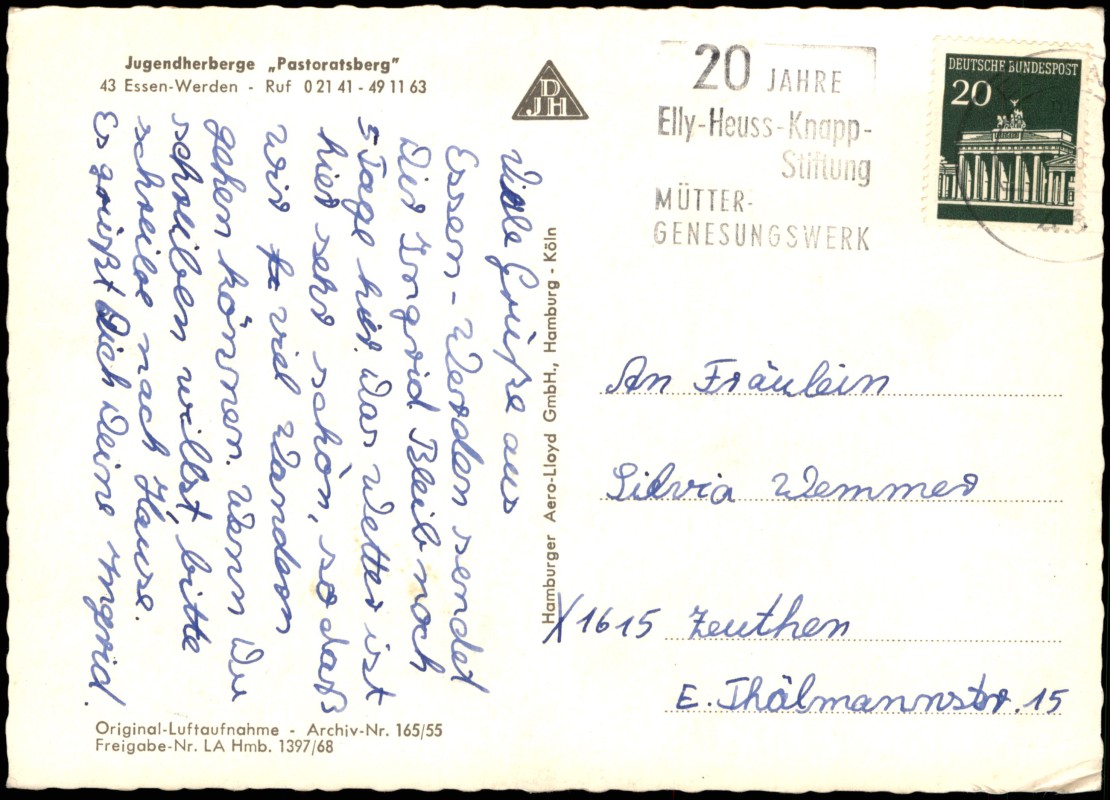 Jugendherberge „Pastoratsberg"
43 Essen-Werden - Ruf 0 21 41 - 49 11 63
DJH
20 JAHRE
Elly-Heuss-Knapp-
Stiftung
MÜTTER-
GENESUNGSWERK
DEUTSCHE BUNDESPOST
20
Viele Grüße aus
Essen-Werden sendet
Dir Ingrid Bleib noch
5 Tage hier. Das Wetter ist
hier sehr schön, so daß
wir viel Wandern
gehen können. Wenn Du
schreiben willst, bitte
schreibe nach Hause.
Es grüßt Dich Deine Ingrid.
Hamburger Aero-Lloyd GmbH., Hamburg - Köln
An Fräulein
Silvia Wemmer
X 1615 Zeuthen
E. Thälmannstr. 15
Original-Luftaufnahme - Archiv-Nr. 165/55
Freigabe-Nr. LA Hmb. 1397/68